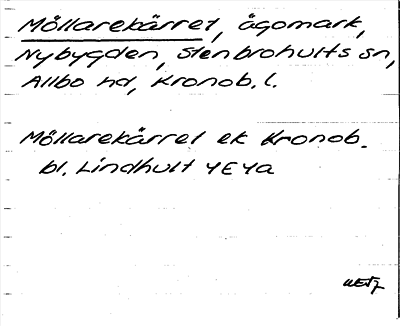 Möllarekärret, ägomark,
Nybygden, Stenbrohults sn,
Allbo hd, Kronob. l.
Möllarekärret ek Kronob.
bl. Lindhult 4E4a